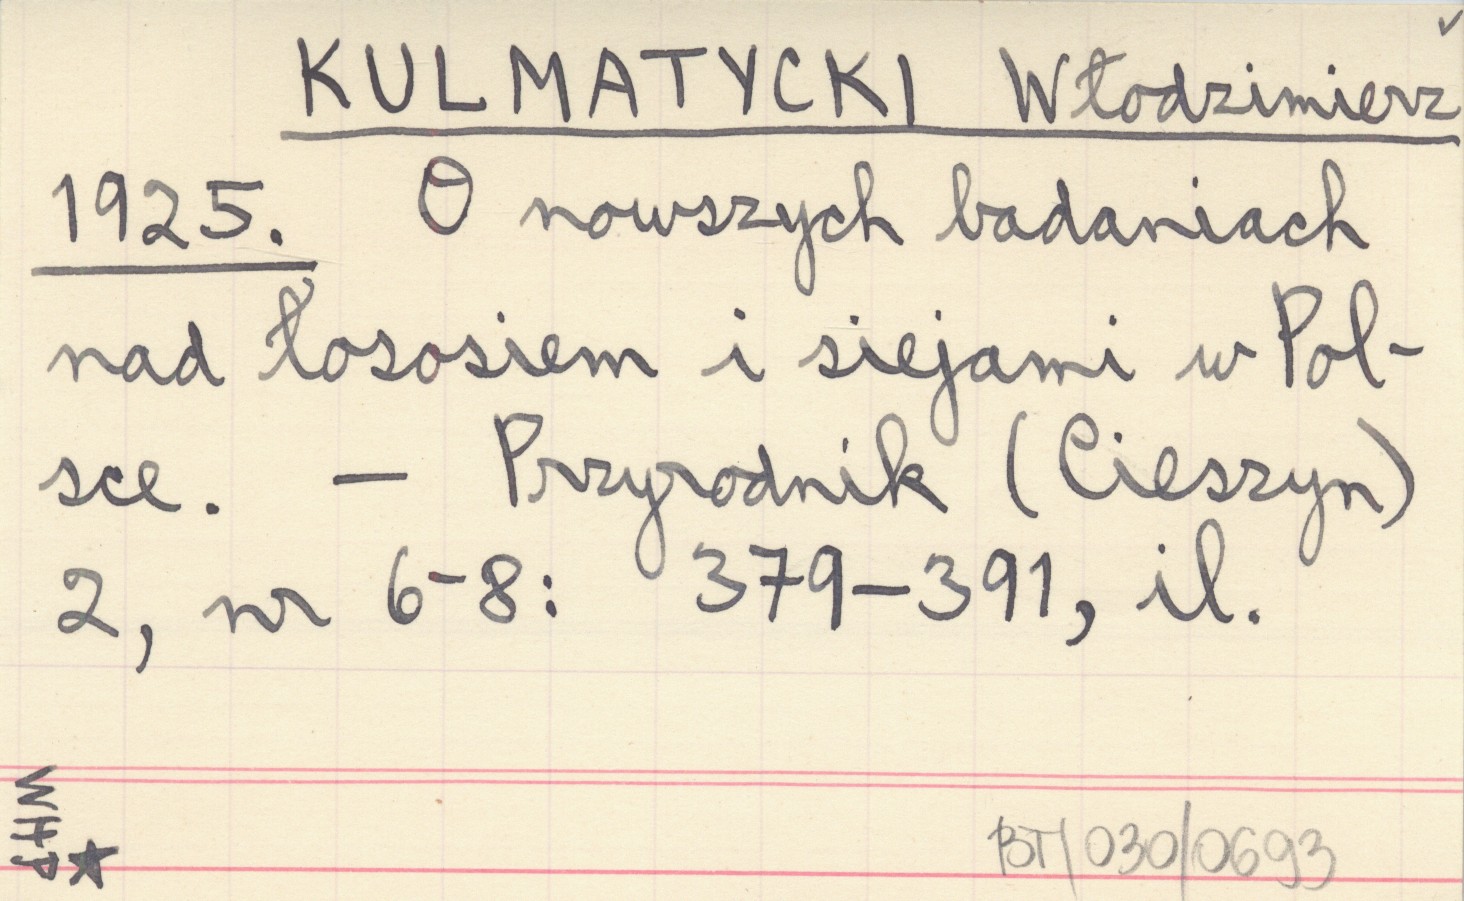 KULMATYCKI Włodzimierz
1925. O nowszych badaniach
nad łososiem i siejami w Pol-
sce. — Przyrodnik (Cieszyn)
2, nr 6-8: 379-391, il.
WHP
BT/030/0693